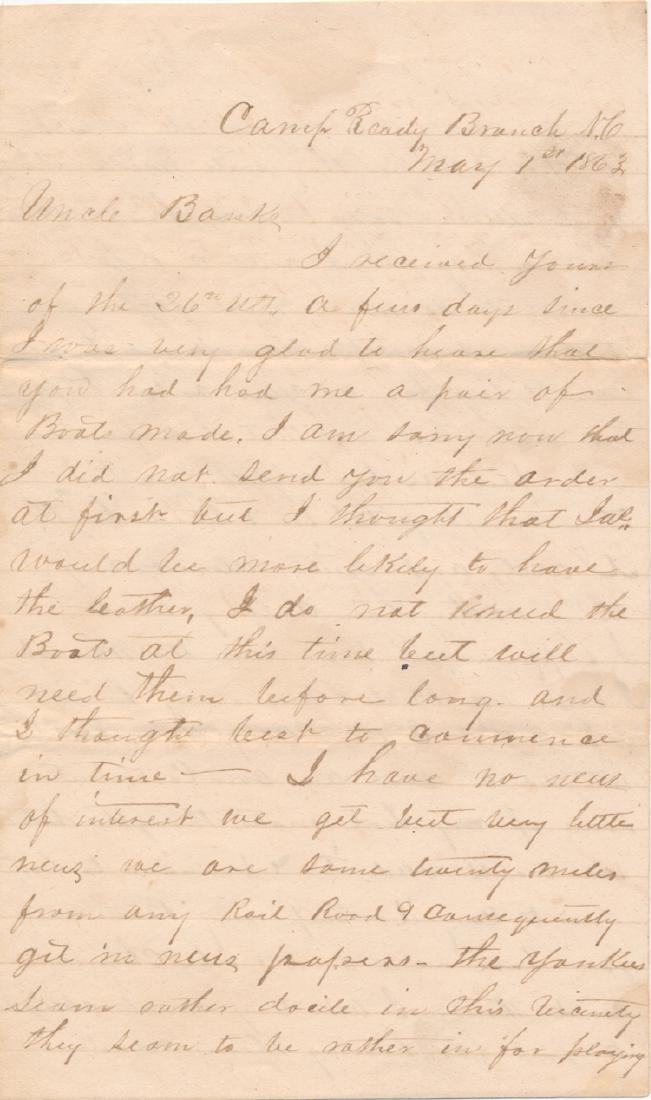 Camp Ready Branch N.C
May 1st 1863
Uncle Banks
I received Yours
of the 26th Ult, a few days since
I was very glad to heare that
you had had me a pair of
Boots made. I am sorry now that
I did not send you the order
at first but I thought that
would be more likely to have
the leather, I do not kneed the
Boots at this time but will
need them before long. and
I thought best to commence
in time — I have no news
of interest we get but very little
news we are some twenty miles
from any Rail Road & Consequently
git no news papers - the Yankees
seam rather docile in this vicinity
they seam to be rather in for playing